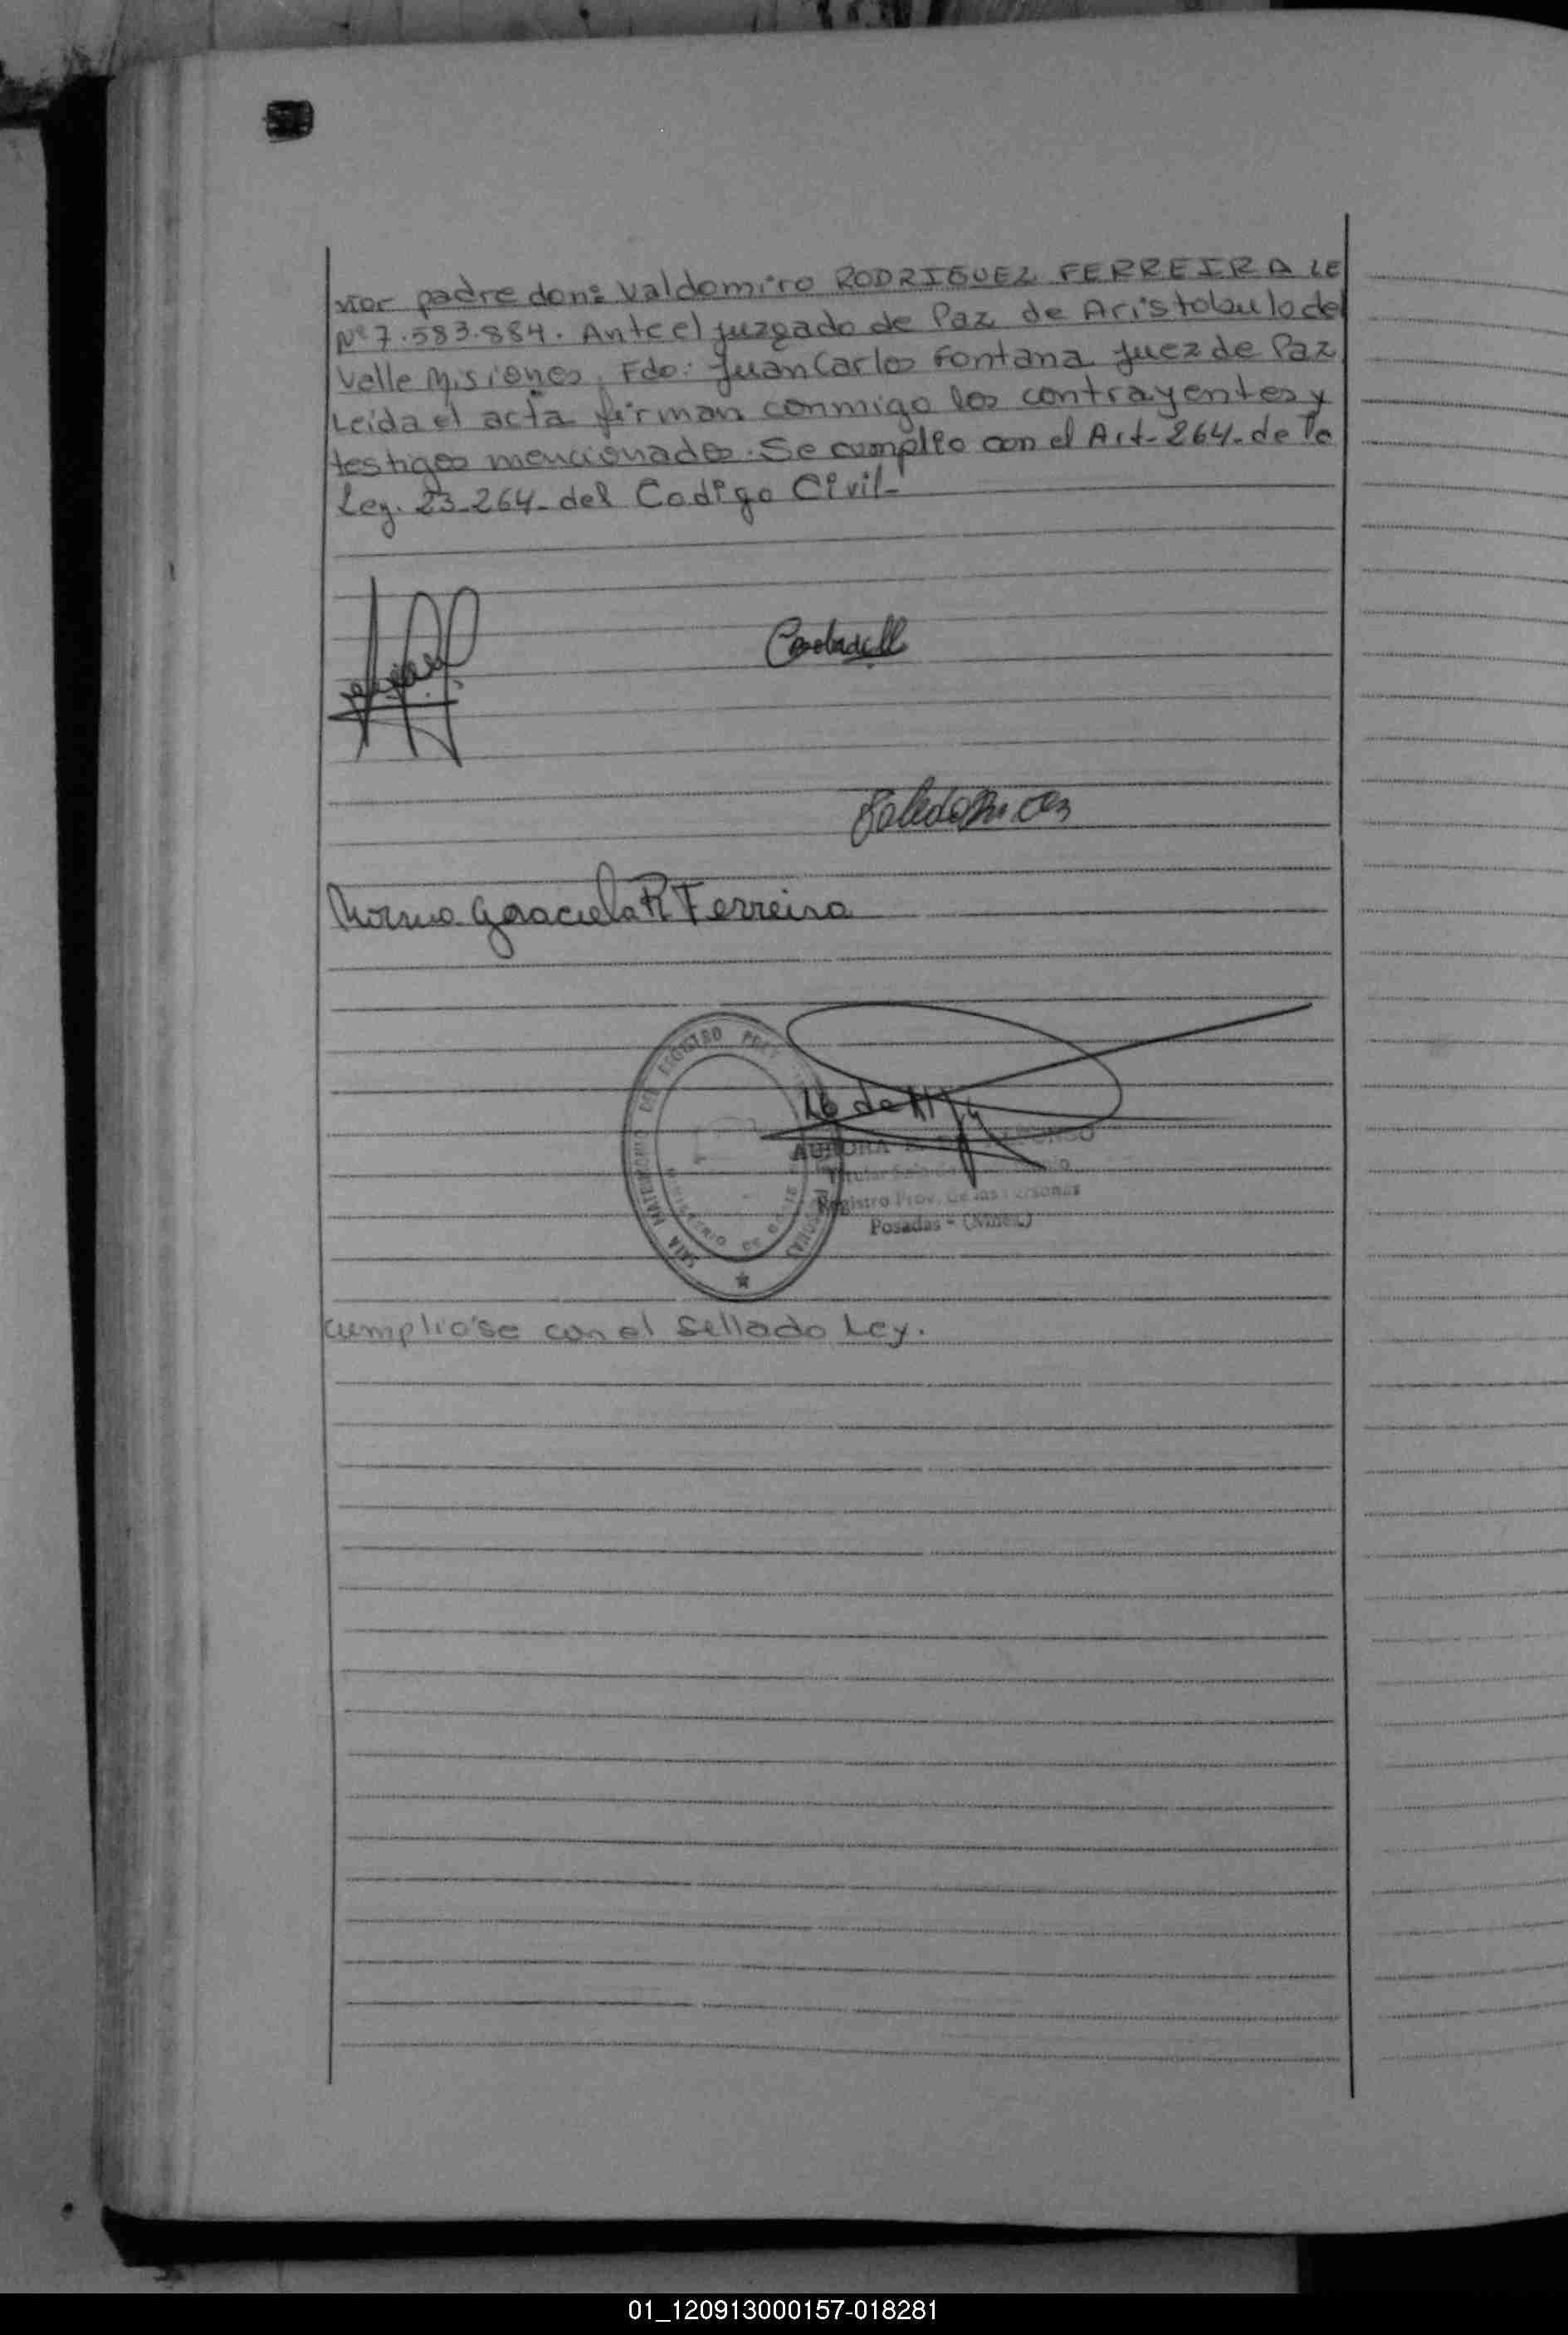 por padre don: Valdomiro RODRIGUEZ FERREIRA LE
Nº 7.583.884. Ante el juzgado de Paz de Aristobulo del
Valle Misiones. Fdo: Juan Carlos Fontana Juez de Paz
Leida el acta firman conmigo los contrayentes y
testigos mencionados. Se cumplio con el Art-264-de la
Ley. 23-264-del Codigo Civil-
Norma Graciela R Ferreira
SALA MATRIMONIO DEL REGISTRO PROV
PERSONAS
MINISTERIO DE
AURORA
Titular
Registro Prov. de las Personas
Posadas - (Mnes.)
cumplióse con el Sellado Ley.
01_120913000157-018281